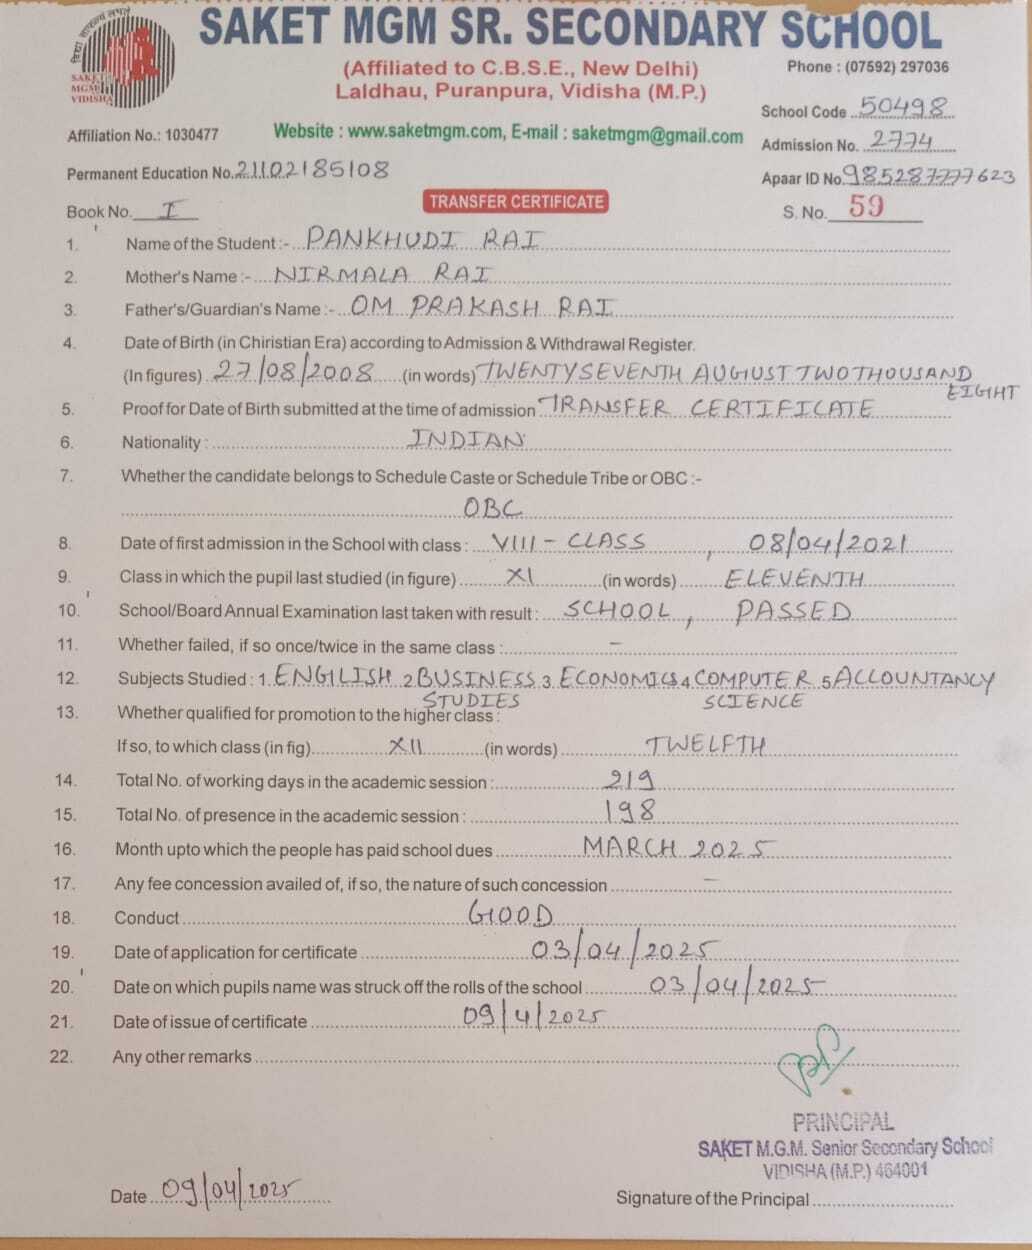 विद्या ददाति
SAKET
MGM
VIDISHA
SAKET MGM SR. SECONDARY SCHOOL
(Affiliated to C.B.S.E., New Delhi)
Phone : (07592) 297036
Laldhau, Puranpura, Vidisha (M.P.)
School Code 50498
Affiliation No.: 1030477
Website : www.saketmgm.com, E-mail : saketmgm@gmail.com
Admission No. 2774
Permanent Education No. 21102185108
Apaar ID No. 985287777623
Book No. I
TRANSFER CERTIFICATE
S. No. 59
1. Name of the Student :- PANKHUDI RAI
2. Mother's Name :- NIRMALA RAI
3. Father's/Guardian's Name :- OM PRAKASH RAI
4. Date of Birth (in Chiristian Era) according to Admission & Withdrawal Register.
(In figures) 27/08/2008 (in words) TWENTYSEVENTH AUGUST TWO THOUSAND
EIGHT
5. Proof for Date of Birth submitted at the time of admission TRANSFER CERTIFICATE
6. Nationality : INDIAN
7. Whether the candidate belongs to Schedule Caste or Schedule Tribe or OBC :-
OBC
8. Date of first admission in the School with class : VIII - CLASS , 08/04/2021
9. Class in which the pupil last studied (in figure) XI (in words) ELEVENTH
10. School/Board Annual Examination last taken with result : SCHOOL, PASSED
11. Whether failed, if so once/twice in the same class : -
12. Subjects Studied : 1. ENGILISH 2 BUSINESS 3 ECONOMICS 4 COMPUTER 5 ACCOUNTANCY
STUDIES SCIENCE
13. Whether qualified for promotion to the higher class :
If so, to which class (in fig) XII (in words) TWELFTH
14. Total No. of working days in the academic session : 219
15. Total No. of presence in the academic session : 198
16. Month upto which the people has paid school dues MARCH 2025
17. Any fee concession availed of, if so, the nature of such concession -
18. Conduct GOOD
19. Date of application for certificate 03/04/2025
20. Date on which pupils name was struck off the rolls of the school 03/04/2025
21. Date of issue of certificate 09/4/2025
22. Any other remarks
PRINCIPAL
SAKET M.G.M. Senior Secondary School
VIDISHA (M.P.) 464001
Date 09/04/2025
Signature of the Principal